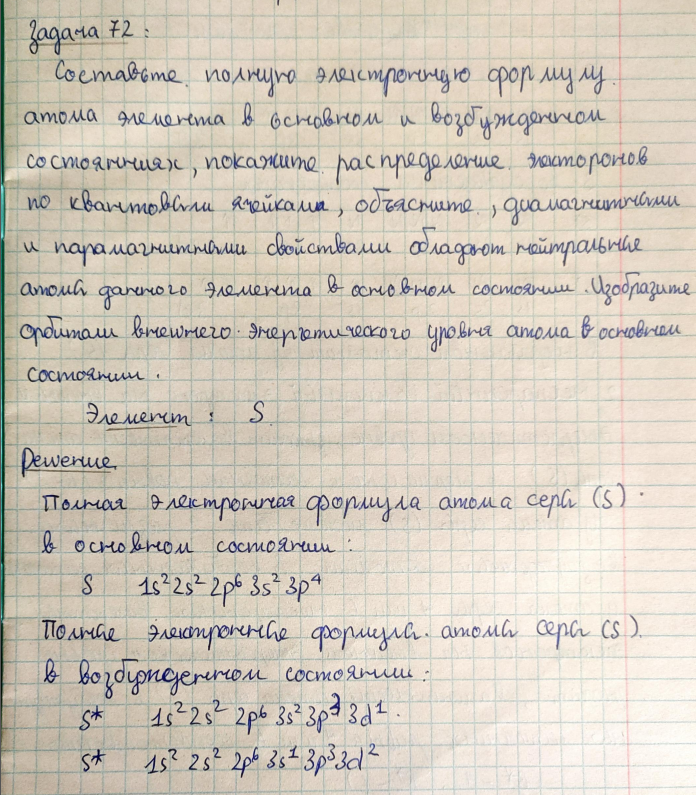 Задача 72:
Составьте полную электронную формулу
атома элемента в основном и возбужденном
состояниях, покажите распределение экторонов
по квантовыми ячейками, объясните, диамагнитными
и парамагнитными свойствами обладают нейтральные
атома данного элемента в основном состоянии. Изобразите
орбитали внешнего энергетического уровня атома в основном
состоянии.
Элемент: S
Решение
Полная электронная формула атома серы (S)
в основном состоянии:
S 1s² 2s² 2p⁶ 3s² 3p⁴
Полные электронные формула атома серы (S)
в возбужденном состоянии:
S* 1s² 2s² 2p⁶ 3s² 3p³ 3d¹
S* 1s² 2s² 2p⁶ 3s¹ 3p³ 3d²